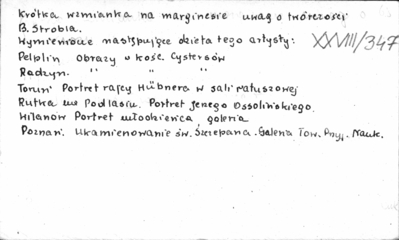 Krótka wzmianka na marginesie uwag o twórczości
B. Strobla.
Wymienione następujące dzieła tego artysty:
XXVIII/347
Pelplin Obrazy w kośc. Cystersów
Radzyn. " " "
Toruń Portret rajcy Hübnera w sali ratuszowej
Rutka na Podlasiu. Portret Jerzego Ossolińskiego.
Wilanów Portret młodzieńca, galeria
Poznań. Ukamienowanie św. Szczepana. Galeria Tow. Przyj. Nauk.